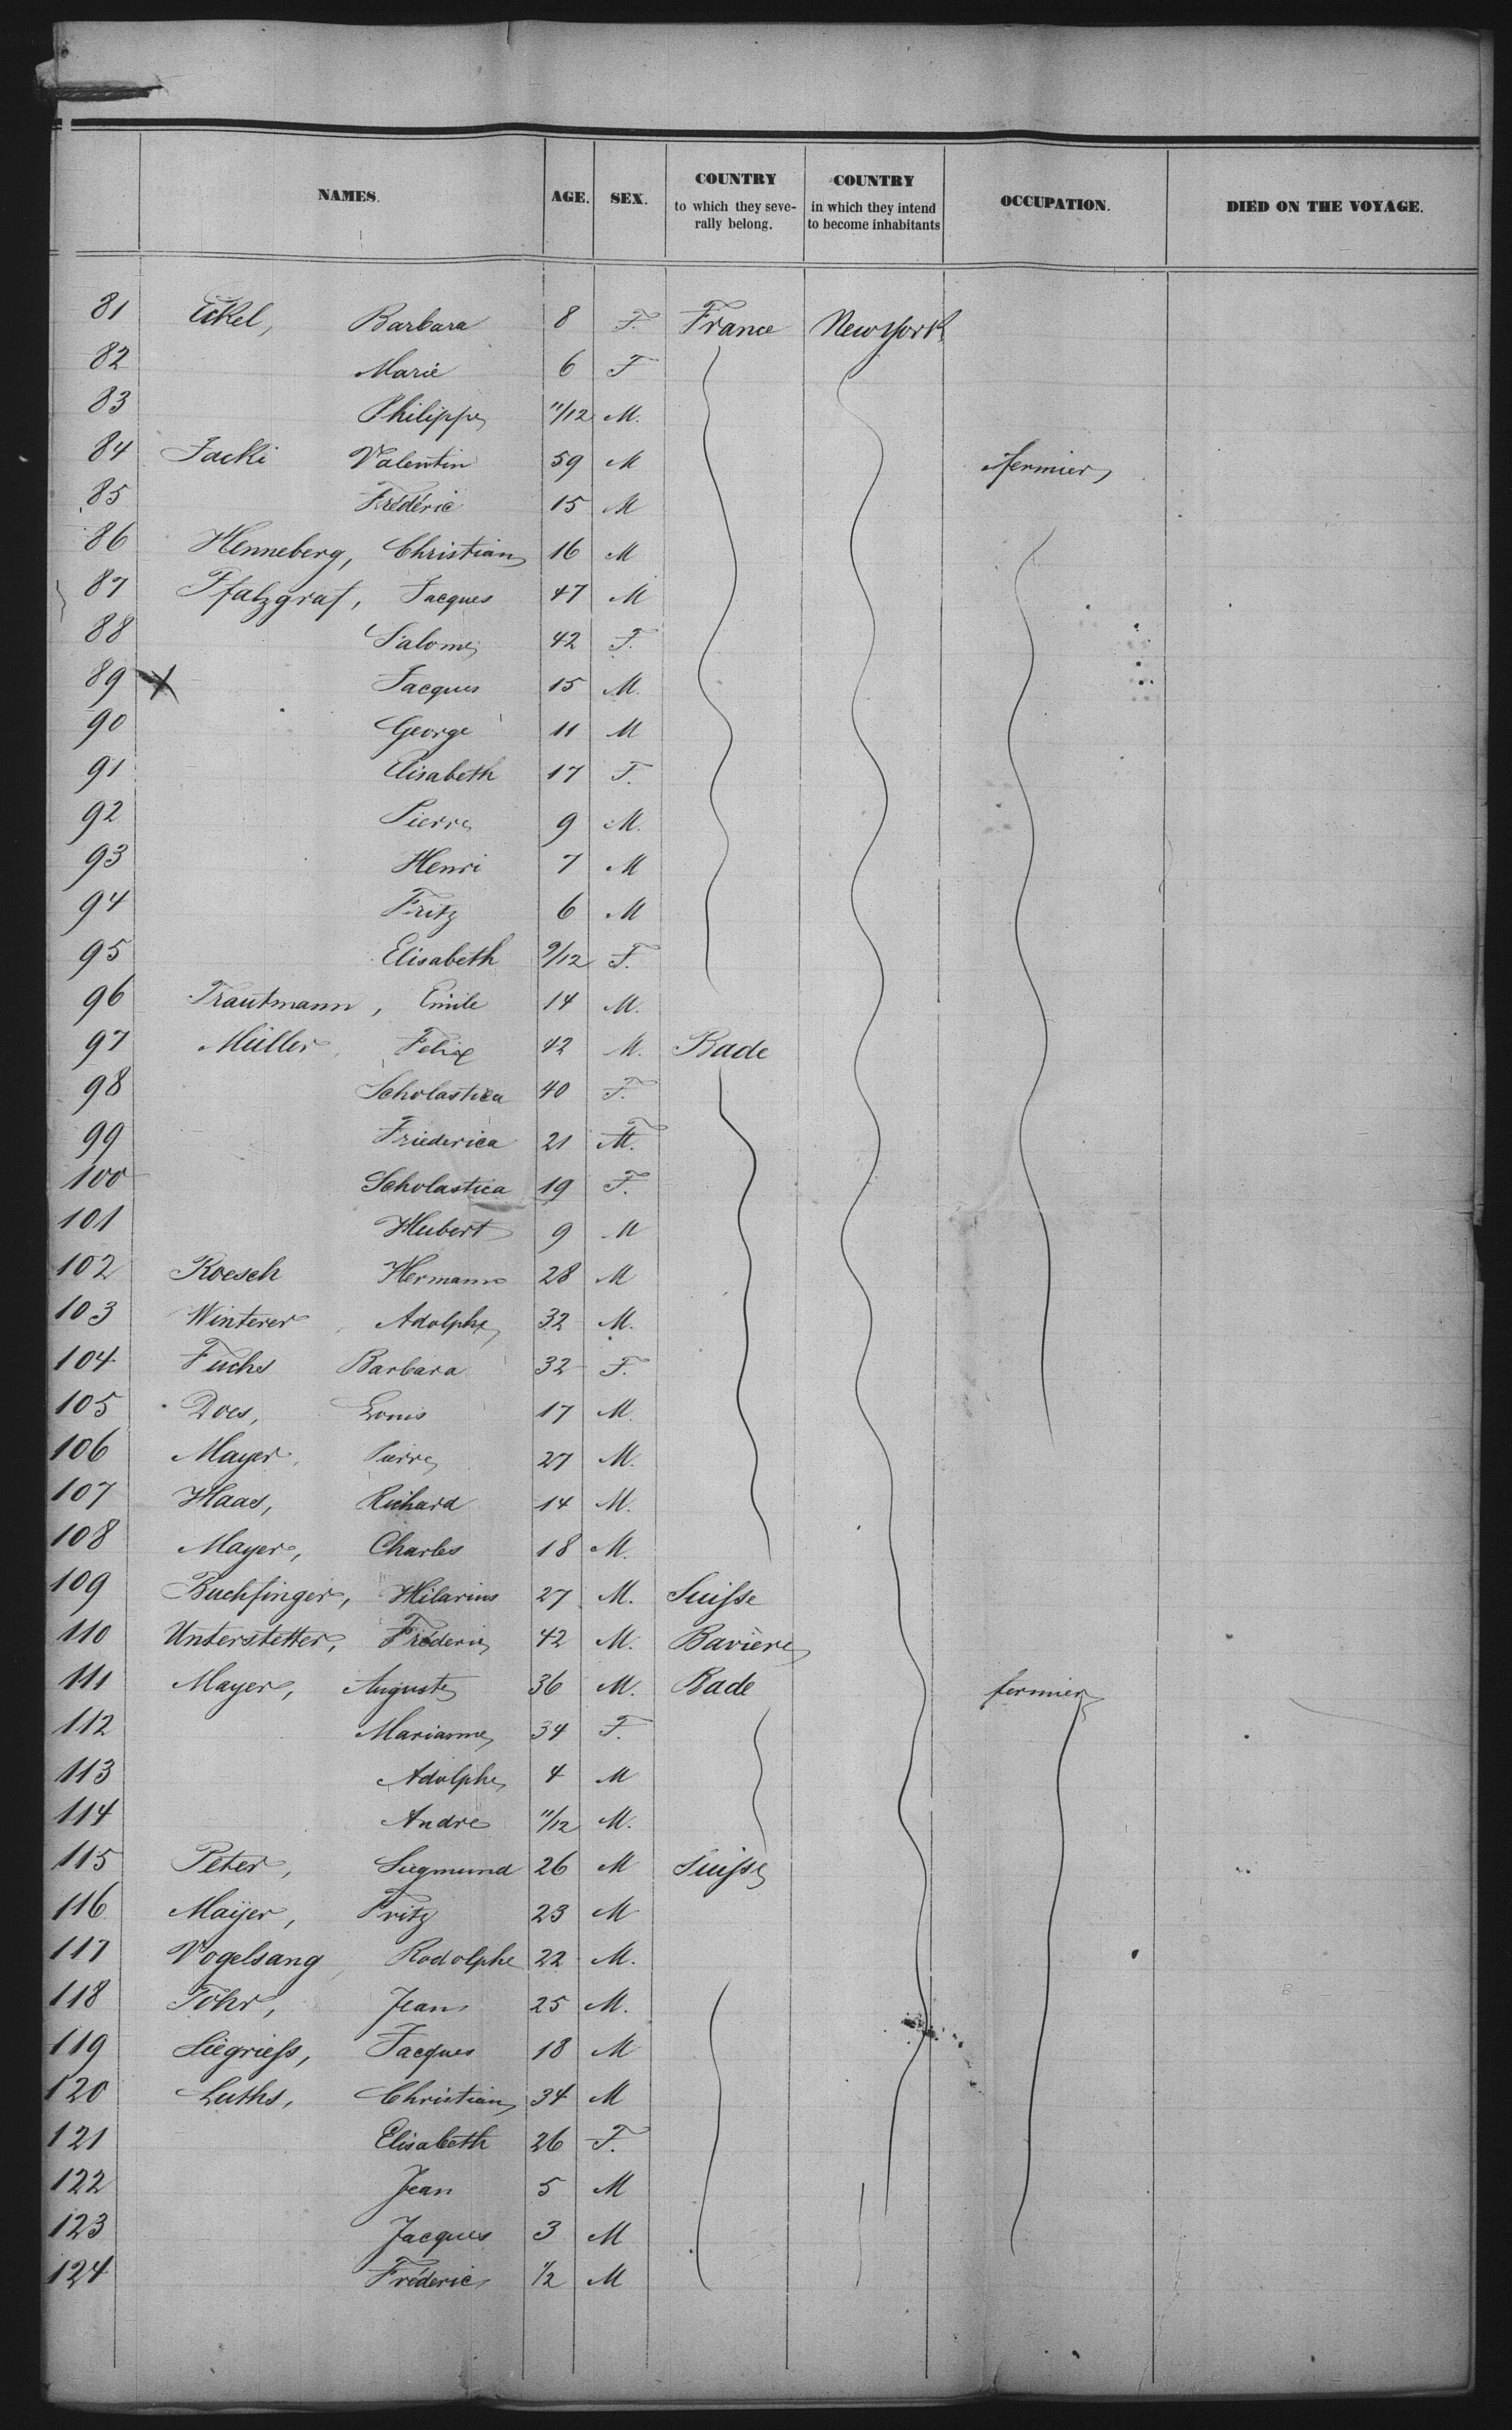 NAMES. AGE. SEX. COUNTRY to which they severally belong. COUNTRY in which they intend to become inhabitants OCCUPATION. DIED ON THE VOYAGE.
81 Eckel, Barbara 8 F. France New York
82 Marie 6 F
83 Philippe 11/12 M.
84 Jacki Valentin 59 M fermier
85 Frédéric 15 M
86 Henneberg, Christian 16 M
87 Pfalzgraf, Jacques 47 M
88 Salome 42 F.
89 X Jacques 15 M.
90 George 11 M
91 Elisabeth 17 F.
92 Pierre 9 M.
93 Henri 7 M
94 Fritz 6 M
95 Elisabeth 9/12 F.
96 Trautmann, Emile 14 M.
97 Müller, Felix 42 M. Bade
98 Scholastica 40 F.
99 Friederica 21
100 Scholastica 19 F.
101 Hubert 9 M
102 Roesch Hermann 28 M
103 Winterer, Adolphe 32 M.
104 Fuchs Barbara 32 F.
105 Does, Louis 17 M.
106 Mayer, Pierre 27 M.
107 Haas, Richard 14 M.
108 Mayer, Charles 18 M.
109 Buchfinger, Hilarius 27 M. Suisse
110 Unterstetter, Fréderic 42 M. Bavière
111 Mayer, Auguste 36 M. Bade fermier
112 Marianne 34 F.
113 Adolphe 4 M
114 Andre 11/12 M.
115 Peter, Siegmund 26 M Suisse
116 Mayer, Fritz 23 M
117 Vogelsang, Rodolphe 22 M.
118 Töhr, Jean 25 M.
119 Siegriess, Jacques 18 M
120 Luths, Christian 34 M
121 Elisabeth 26 F.
122 Jean 5 M
123 Jacques 3 M
124 Fréderic 1/2 M